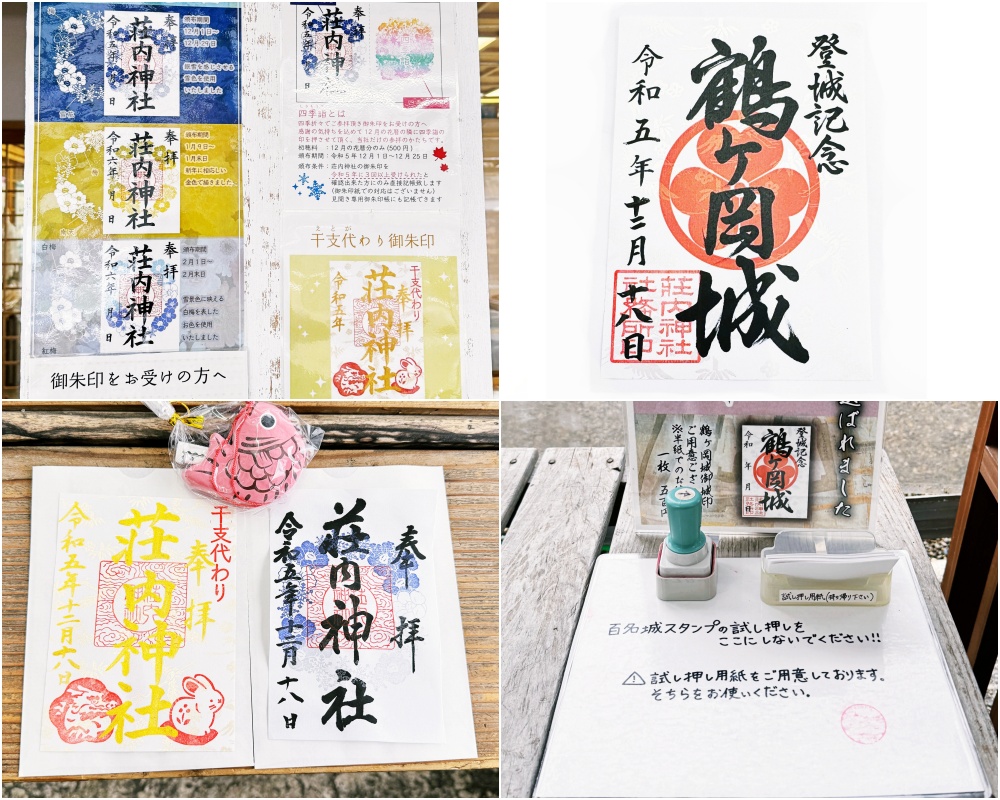 奉拝
荘内神社
令和五年 月 日
頒布期間
12月1日〜
12月29日
飲雪を感じさせる
雪色を使用
いたしました
奉拝
荘内神社
令和六年 月 日
頒布期間
1月9日〜
1月末日
新年に相応しい
金色で描きました
白梅
奉拝
荘内神社
令和六年 月 日
頒布期間
2月1日〜
2月末日
雪景色に映える
白梅を表した
お色を使用
いたしました
紅梅
御朱印をお受けの方へ
奉拝
荘内神
令和五年
四季詣とは
四季折々でご参拝頂き御朱印をお受けの方へ
感謝の気持ちを込めて12月の花暦の横に四季詣の
印を押させて頂く、当社だけの参拝のかたちです。
初穂料 :12月の花暦分のみ(500円)
頒布期間:令和5年12月1日〜12月25日
頒布条件:荘内神社の御朱印を
令和5年に3回以上受けられたと
確認出来た方にのみ直接記帳致します
(御朱印紙での対応はございません)
見開き専用御朱印帳にも記帳できます
干支代わり御朱印
干支代わり
奉拝
荘内神社
令和五年
登城記念
鶴ヶ岡城
令和五年十二月十八日
荘内神社
社務所印
干支代わり
奉拝
荘内神社
令和五年十二月十八日
奉拝
荘内神社
令和五年十二月十八日
ばれました
登城記念
鶴ヶ岡城
令和 年 月 日
鶴ヶ岡城御城印
ご用意ござ
※半紙での
一枚 五百円
試し押し用紙(持ち帰り下さい)
百名城スタンプの試し押しを
ここにしないでください!!
⚠試し押し用紙をご用意しております。
そちらをお使いください。